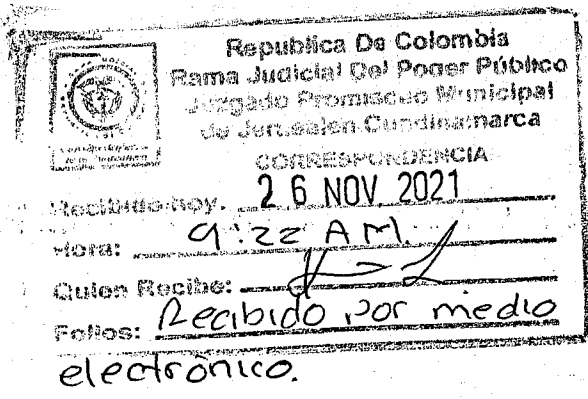 Republica De Colombia
Rama Judicial Del Poder Público
Juzgado Promiscuo Municipal
de Jerusalen Cundinamarca
CORRESPONDENCIA
Recibido hoy. 26 NOV 2021
Hora: 9:22 AM.
Quien Recibe:
Folios: Recibido por medio
electrónico.